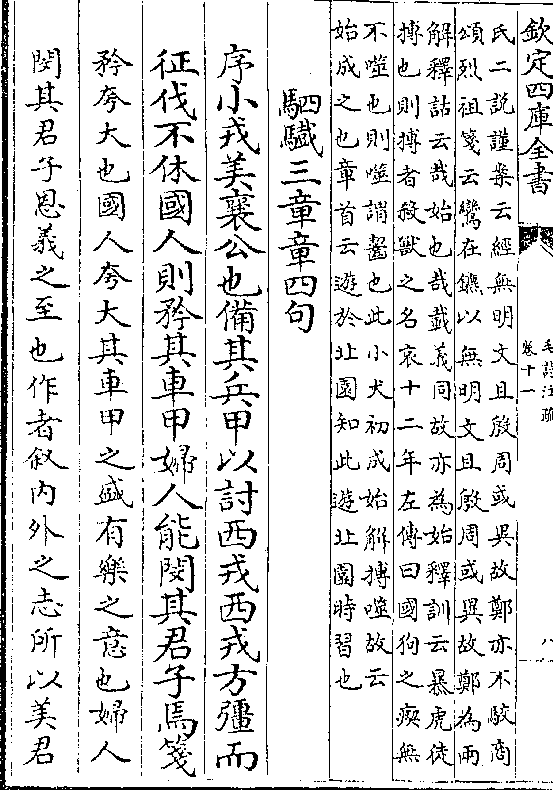 欽定四庫全書
毛詩注疏
卷十一
八
氏二説謹案云經無明文且殷周或異故鄭亦不駮商
頌烈祖箋云鸞在鑣以無明文且殷周或異故鄭為兩
解釋詁云哉始也哉載義同故亦為始釋訓云暴虎徒
搏也則搏者殺獸之名哀十二年左傳曰國狗之瘈無
不噬也則噬謂齧也此小犬初成始解搏噬故云
始成之也章首云遊於北園知此遊北園時習也
駟驖三章章四句
序小戎美襄公也備其兵甲以討西戎西戎方彊而
征伐不休國人則矜其車甲婦人能閔其君子焉箋
矜夸大也國人夸大其車甲之盛有樂之意也婦人
閔其君子恩義之至也作者叙内外之志所以美君